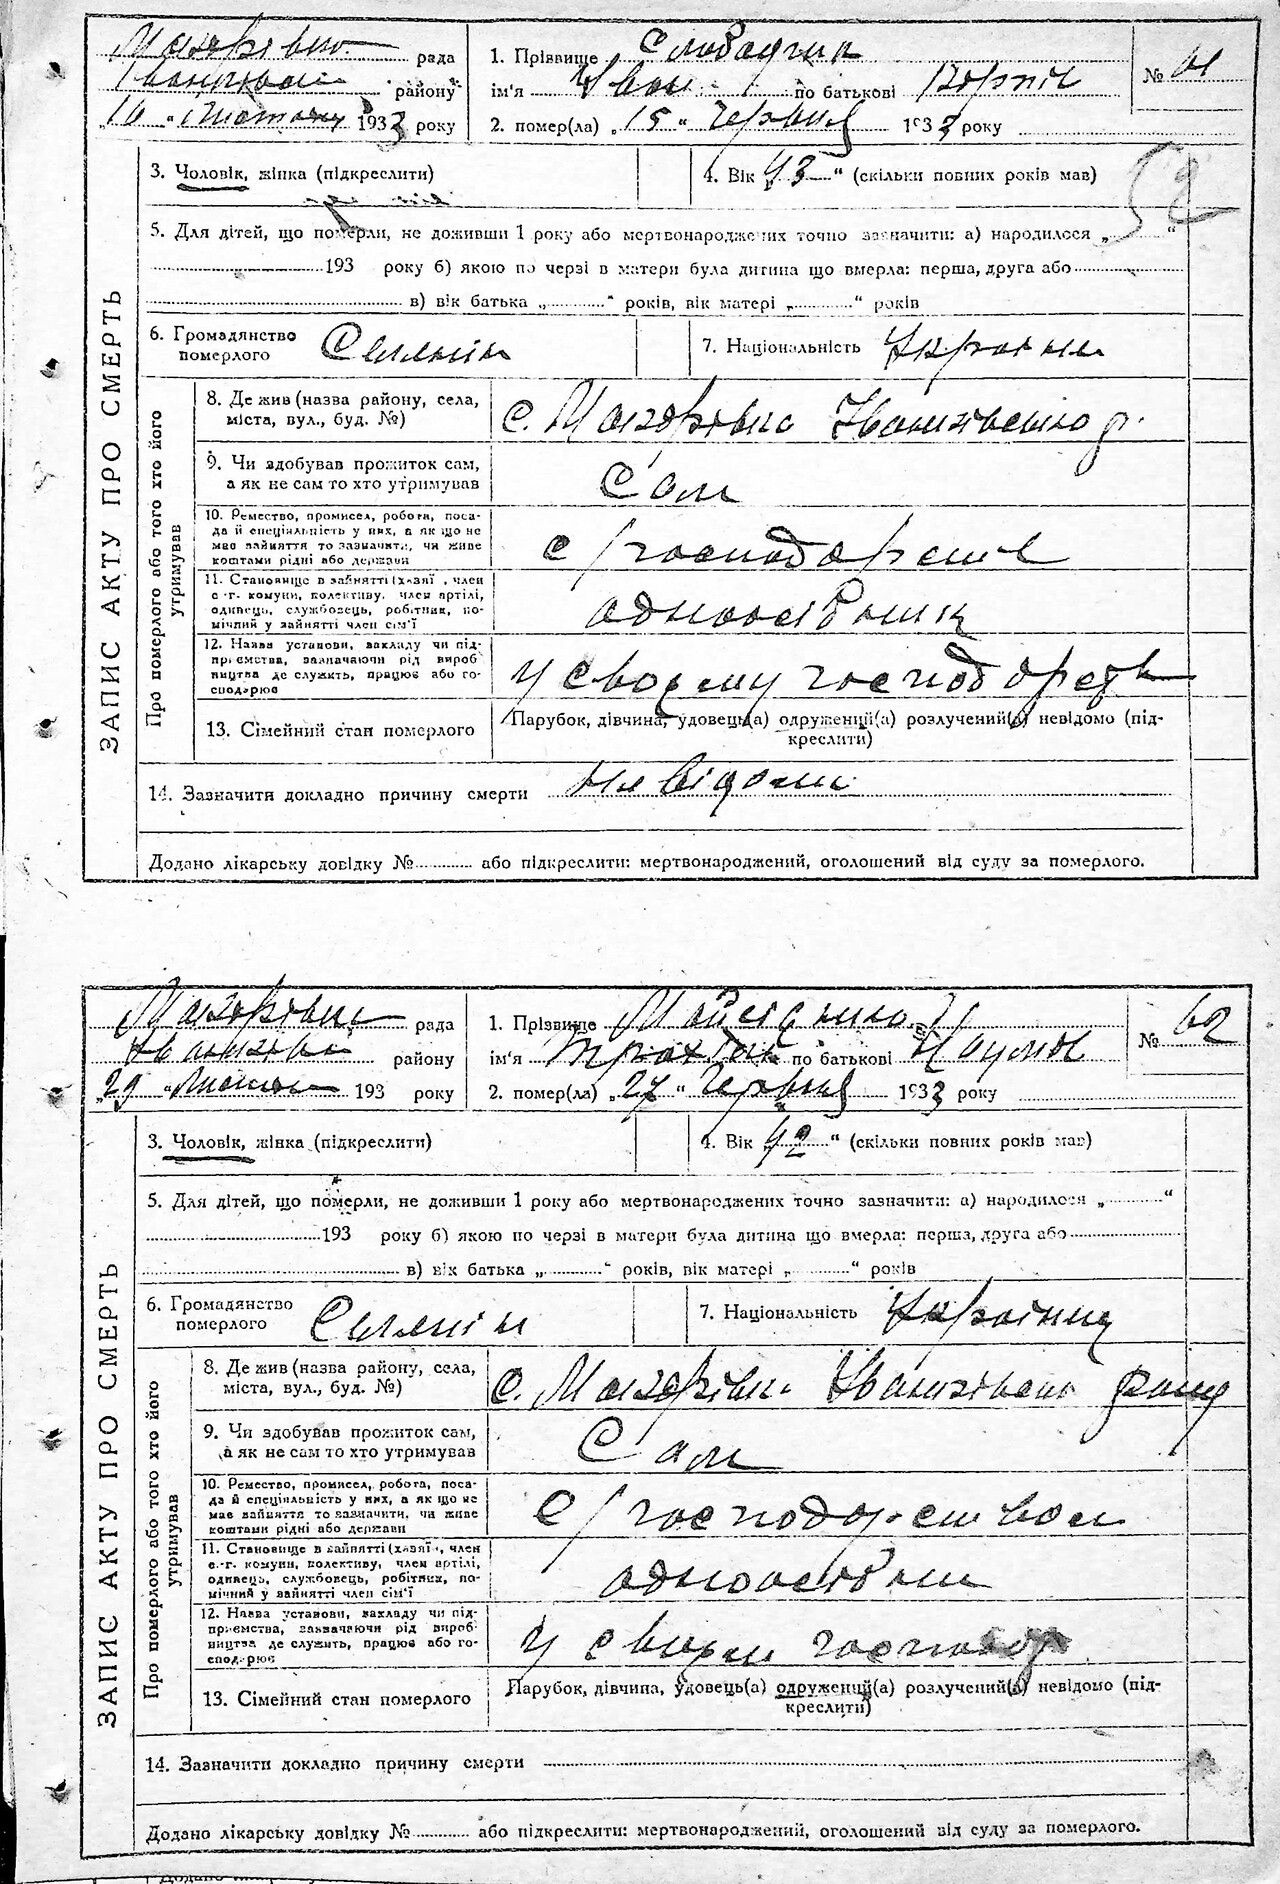 Макарівка рада
Іванківськ. району
„16" листопад 1933 року
1. Прізвище Слободчик
ім'я Іван по батькові Корнів
2. помер(ла) „15" Червня 1933 року
№ 61
3. Чоловік, жінка (підкреслити)
4. Вік „43" (скільки повних років мав)
52
5. Для дітей, що померли, не доживши 1 року або мертвонароджених точно зазначити: а) народилося „ "
193 року б) якою по черзі в матери була дитина що вмерла: перша, друга або
в) вік батька „ " років, вік матері „ " років
6. Громадянство
померлого Селянин
7. Національність Украінец
ЗАПИС АКТУ ПРО СМЕРТЬ
Про померлого або того хто його
утримував
8. Де жив (назва району, села,
міста, вул., буд. №)
с. Макарівка Іванківського р.
9. Чи здобував прожиток сам,
а як не сам то хто утримував
Сам
10. Ремество, промисел, робота, поса-
да й спеціяльність у них, а як що не
має зайняття то зазначити, чи живе
коштами рідні або держави
с/господарств
11. Становище в зайнятті (хазяї , член
с.-г. комуни, колективу, член артілі,
одинець, службовець, робітник, по-
мічний у зайнятті член сім'ї
одноосібник
12. Назва установи, закладу чи під-
приємства, зазначаючи рід вироб
ництва де служить, працює або го-
сподарює
у своєму господарстві
13. Сімейний стан померлого
Парубок, дівчина, удовець(а) одружений(а) розлучений(а) невідомо (під-
креслити)
14. Зазначити докладно причину смерти невідома
Додано лікарську довідку № або підкреслити: мертвонароджений, оголошений від суду за померлого.
Макарівка рада
Іванківськ району
„29" листопад 193 року
1. Прізвище
ім'я по батькові Наумов
2. помер(ла) „27" Червня 1933 року
№ 62
3. Чоловік, жінка (підкреслити)
4. Вік „42" (скільки повних років мав)
5. Для дітей, що померли, не доживши 1 року або мертвонароджених точно зазначити: а) народилося „ "
193 року б) якою по черзі в матери була дитина що вмерла: перша, друга або
в) вік батька „ " років, вік матері „ " років
6. Громадянство
померлого Селянин
7. Національність Украінец
ЗАПИС АКТУ ПРО СМЕРТЬ
Про померлого або того хто його
утримував
8. Де жив (назва району, села,
міста, вул., буд. №)
с. Макарівка Іванківського району
9. Чи здобував прожиток сам,
а як не сам то хто утримував
Сам
10. Ремество, промисел, робота, поса-
да й спеціяльність у них, а як що не
має зайняття то зазначити, чи живе
коштами рідні або держави
с/господарством
11. Становище в зайнятті (хазяї , член
с.-г. комуни, колективу, член артілі,
одинець, службовець, робітник, по-
мічний у зайнятті член сім'ї
одноосібник
12. Назва установи, закладу чи під-
приємства, зазначаючи рід вироб
ництва де служить, працює або го-
сподарює
у своєм господар
13. Сімейний стан померлого
Парубок, дівчина, удовець(а) одружений(а) розлучений(а) невідомо (під-
креслити)
14. Зазначити докладно причину смерти
Додано лікарську довідку № або підкреслити: мертвонароджений, оголошений від суду за померлого.